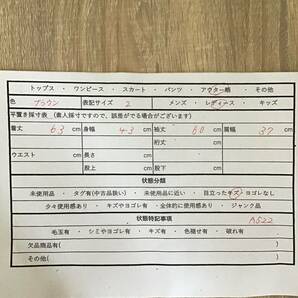 トップス ・ ワンピース ・ スカート ・ パンツ ・ アウター類 ・ その他
色 ブラウン 表記サイズ 2 メンズ ・ レディース ・ キッズ
平置き採寸表 (素人採寸ですので、誤差がでる場合がございます)
着丈 63 cm 身幅 43 cm 袖丈 60 cm 肩幅 37 cm
裄丈 cm
ウエスト cm 長さ cm 股上 cm
もも幅 cm 股下 cm
状態分類
未使用品 ・ タグ有(中古品扱い) ・ 未使用品に近い ・ 目立ったキズ・ヨゴレなし
少々使用感あり ・ キズやヨゴレ有 ・ 全体的に使用感あり ・ ジャンク品
状態特記事項 A522
毛玉有 ・ シミやヨゴレ有 ・ キズ有 ・ 色褪せ有 ・ 破れ有
欠品商品有( )
その他( )